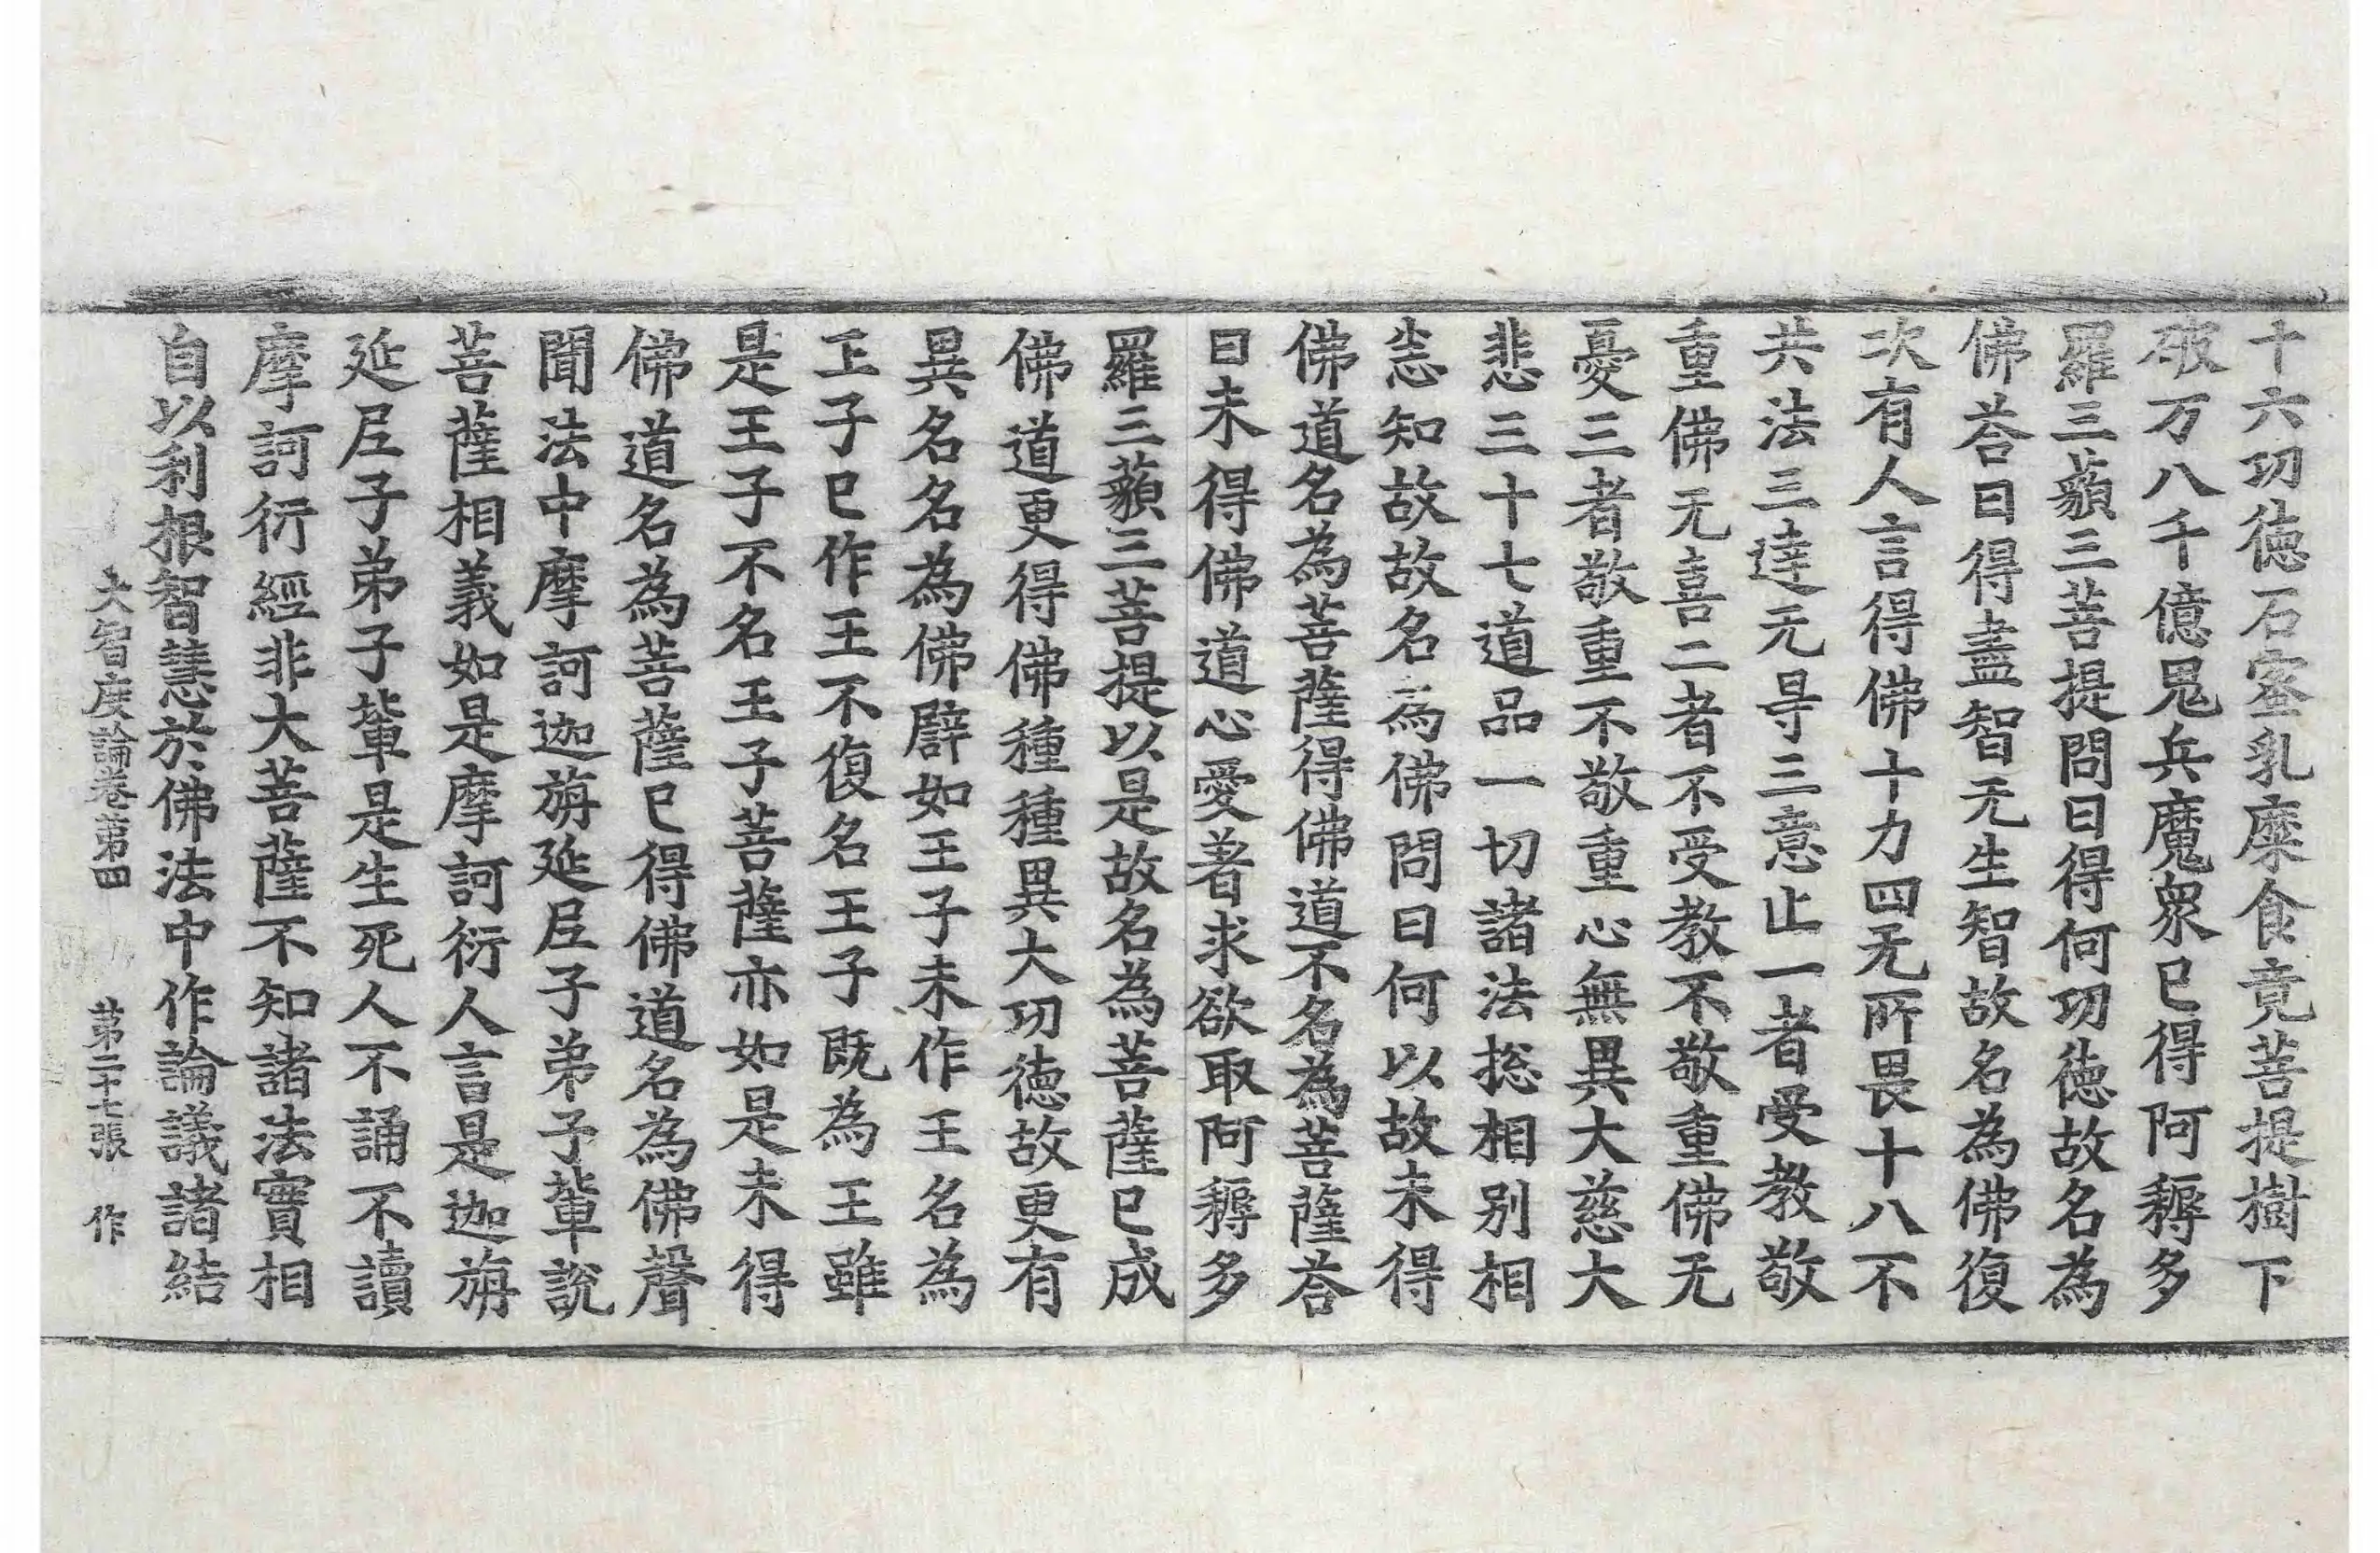 十六功徳石蜜乳糜食竟菩提樹下
破万八千億鬼兵魔衆已得阿耨多
羅三藐三菩提問曰得何功徳故名為
佛荅曰得盡智无生智故名為佛復
次有人言得佛十力四无所畏十八不
共法三達无㝵三意止一者受教敬
重佛无喜二者不受教不敬重佛无
憂三者敬重不敬重心無異大慈大
悲三十七道品一切諸法捴相別相
悉知故故名為佛問曰何以故未得
佛道名為菩薩得佛道不名為菩薩荅
曰未得佛道心愛著求欲取阿耨多
羅三藐三菩提以是故名為菩薩已成
佛道更得佛種種異大功徳故更有
異名名為佛譬如王子未作王名為
王子已作王不復名王子既為王雖
是王子不名王子菩薩亦如是未得
佛道名為菩薩已得佛道名為佛聲
聞法中摩訶迦旃延尼子弟子輩說
菩薩相義如是摩訶衍人言是迦旃
延尼子弟子輩是生死人不誦不讀
摩訶衍經非大菩薩不知諸法實相
自以利根智慧於佛法中作論議諸結
大智度論卷第四 第二十七張 作